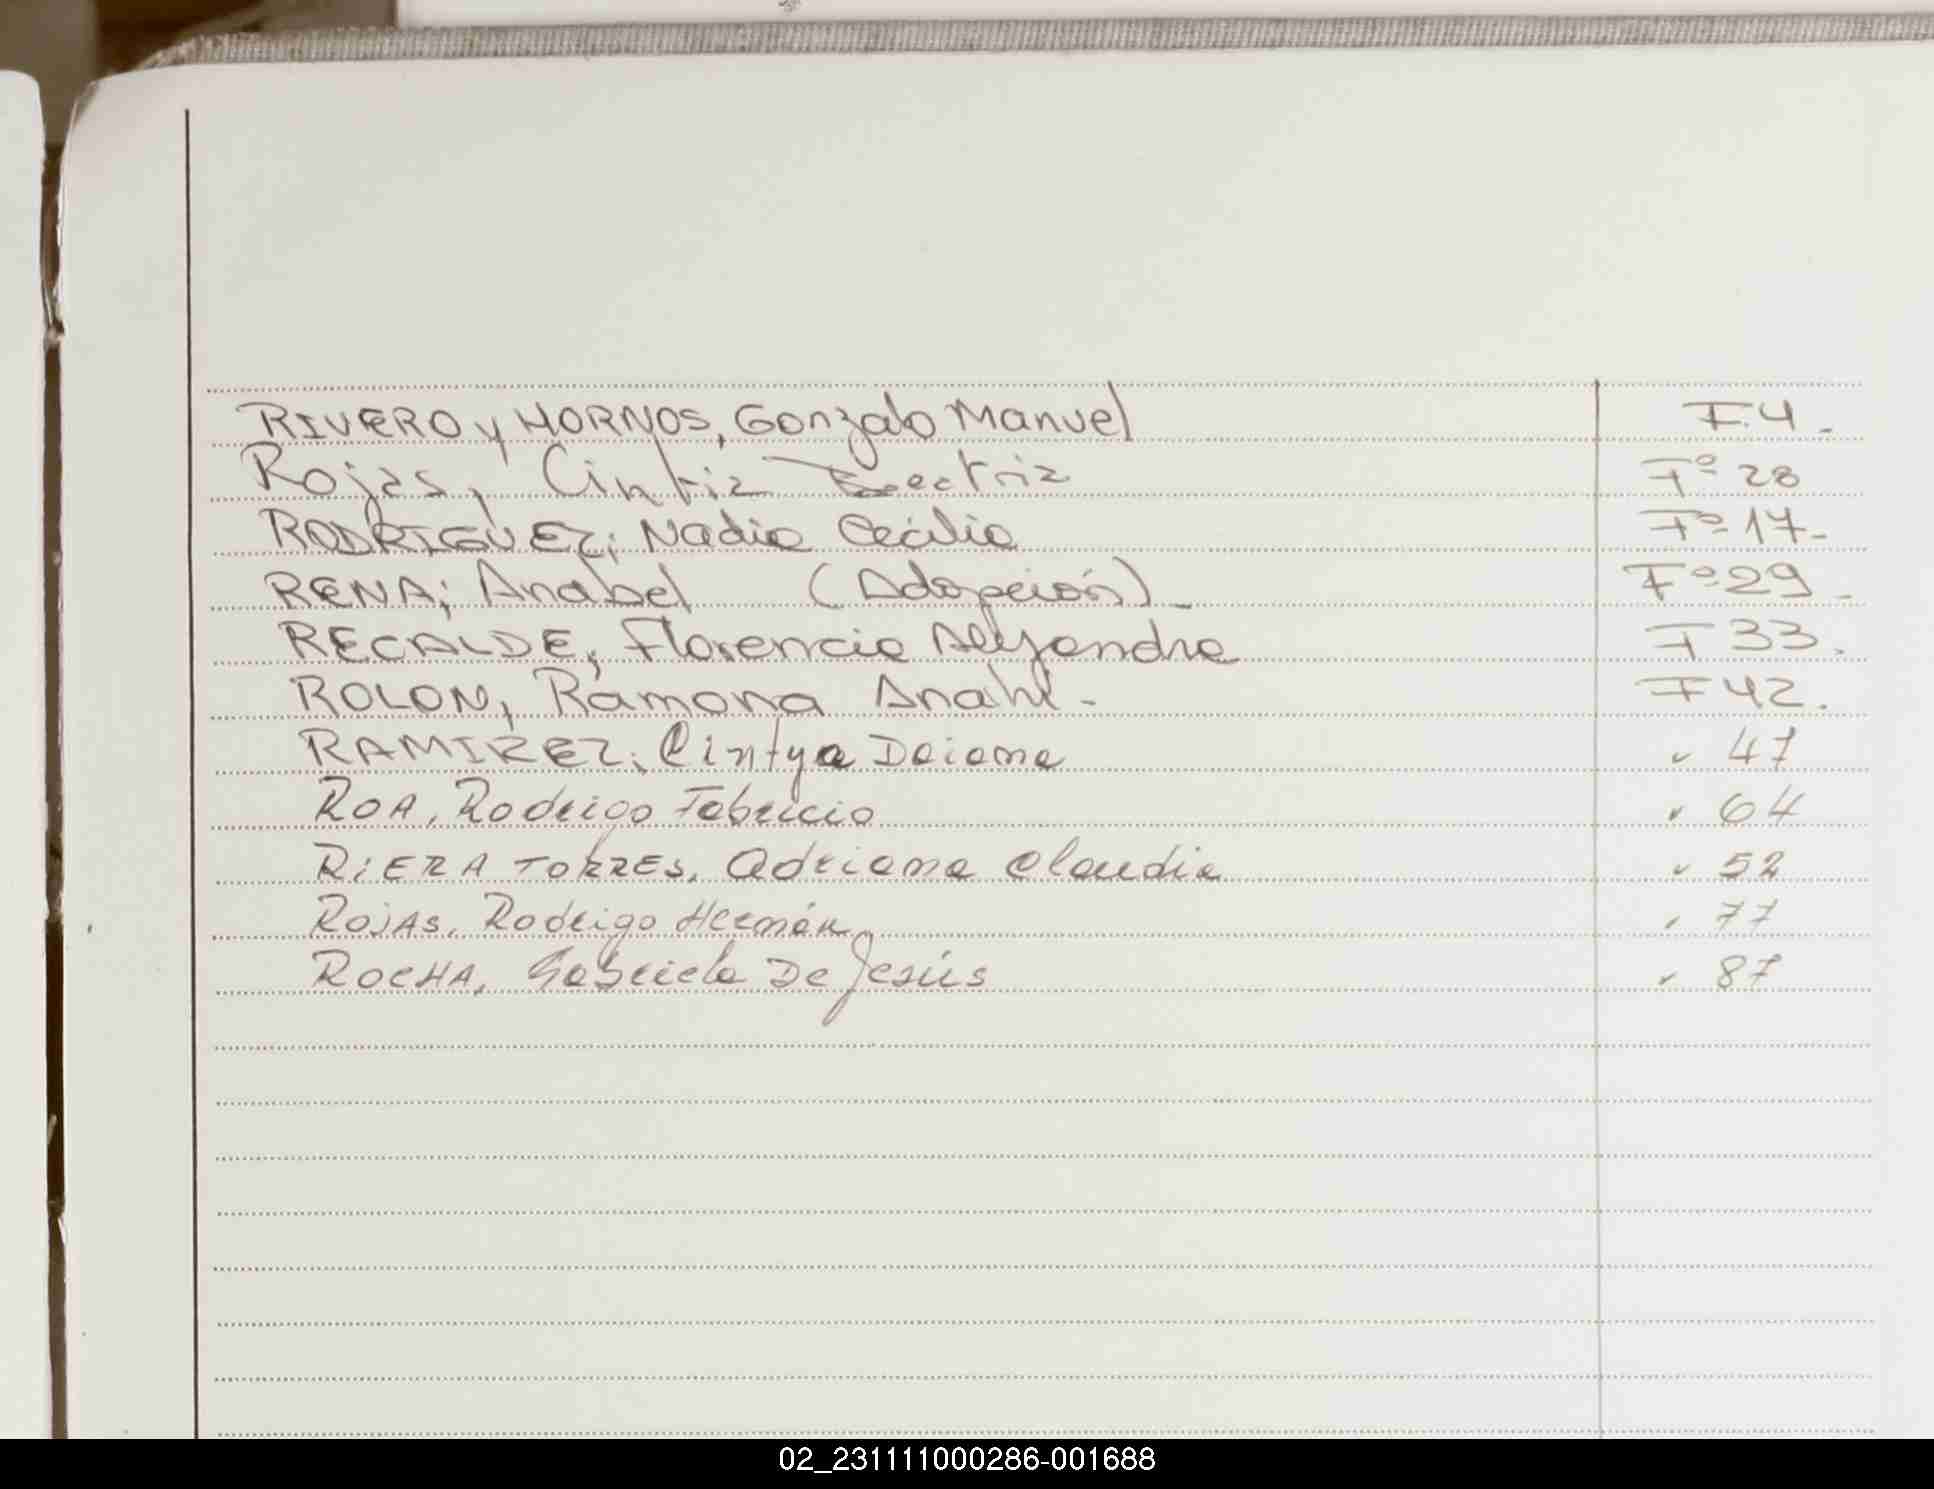 RIVERO y HORNOS, Gonzalo Manuel F.4.-
Rojas, Cintia Beatriz Fº 28
RODRIGUEZ; Nadia Cecilia Fº 17.-
RENA; Anabel (Adopción)- Fº 29-
RECALDE, Florencia Alejandra F 33.
ROLON, Ramona Anahi.- F 42.
RAMIREZ, Cintya Daiana " 47
ROA, Rodrigo Fabricio " 64
RiERA TORRES, Adriana Claudia " 52
ROJAS, Rodrigo Hernán " 77
ROCHA, Gabriela De Jesús " 87
02_231111000286-001688